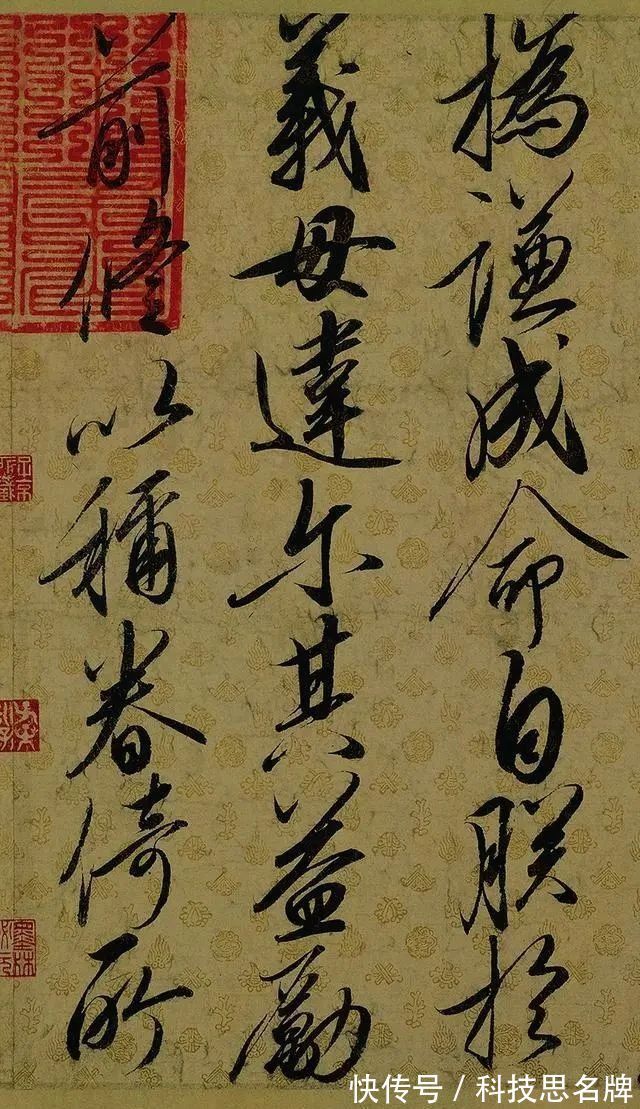 撝謙成命自朕於
義毋違尔其益勵
前修以稱眷倚所
快传号 / 科技思名牌